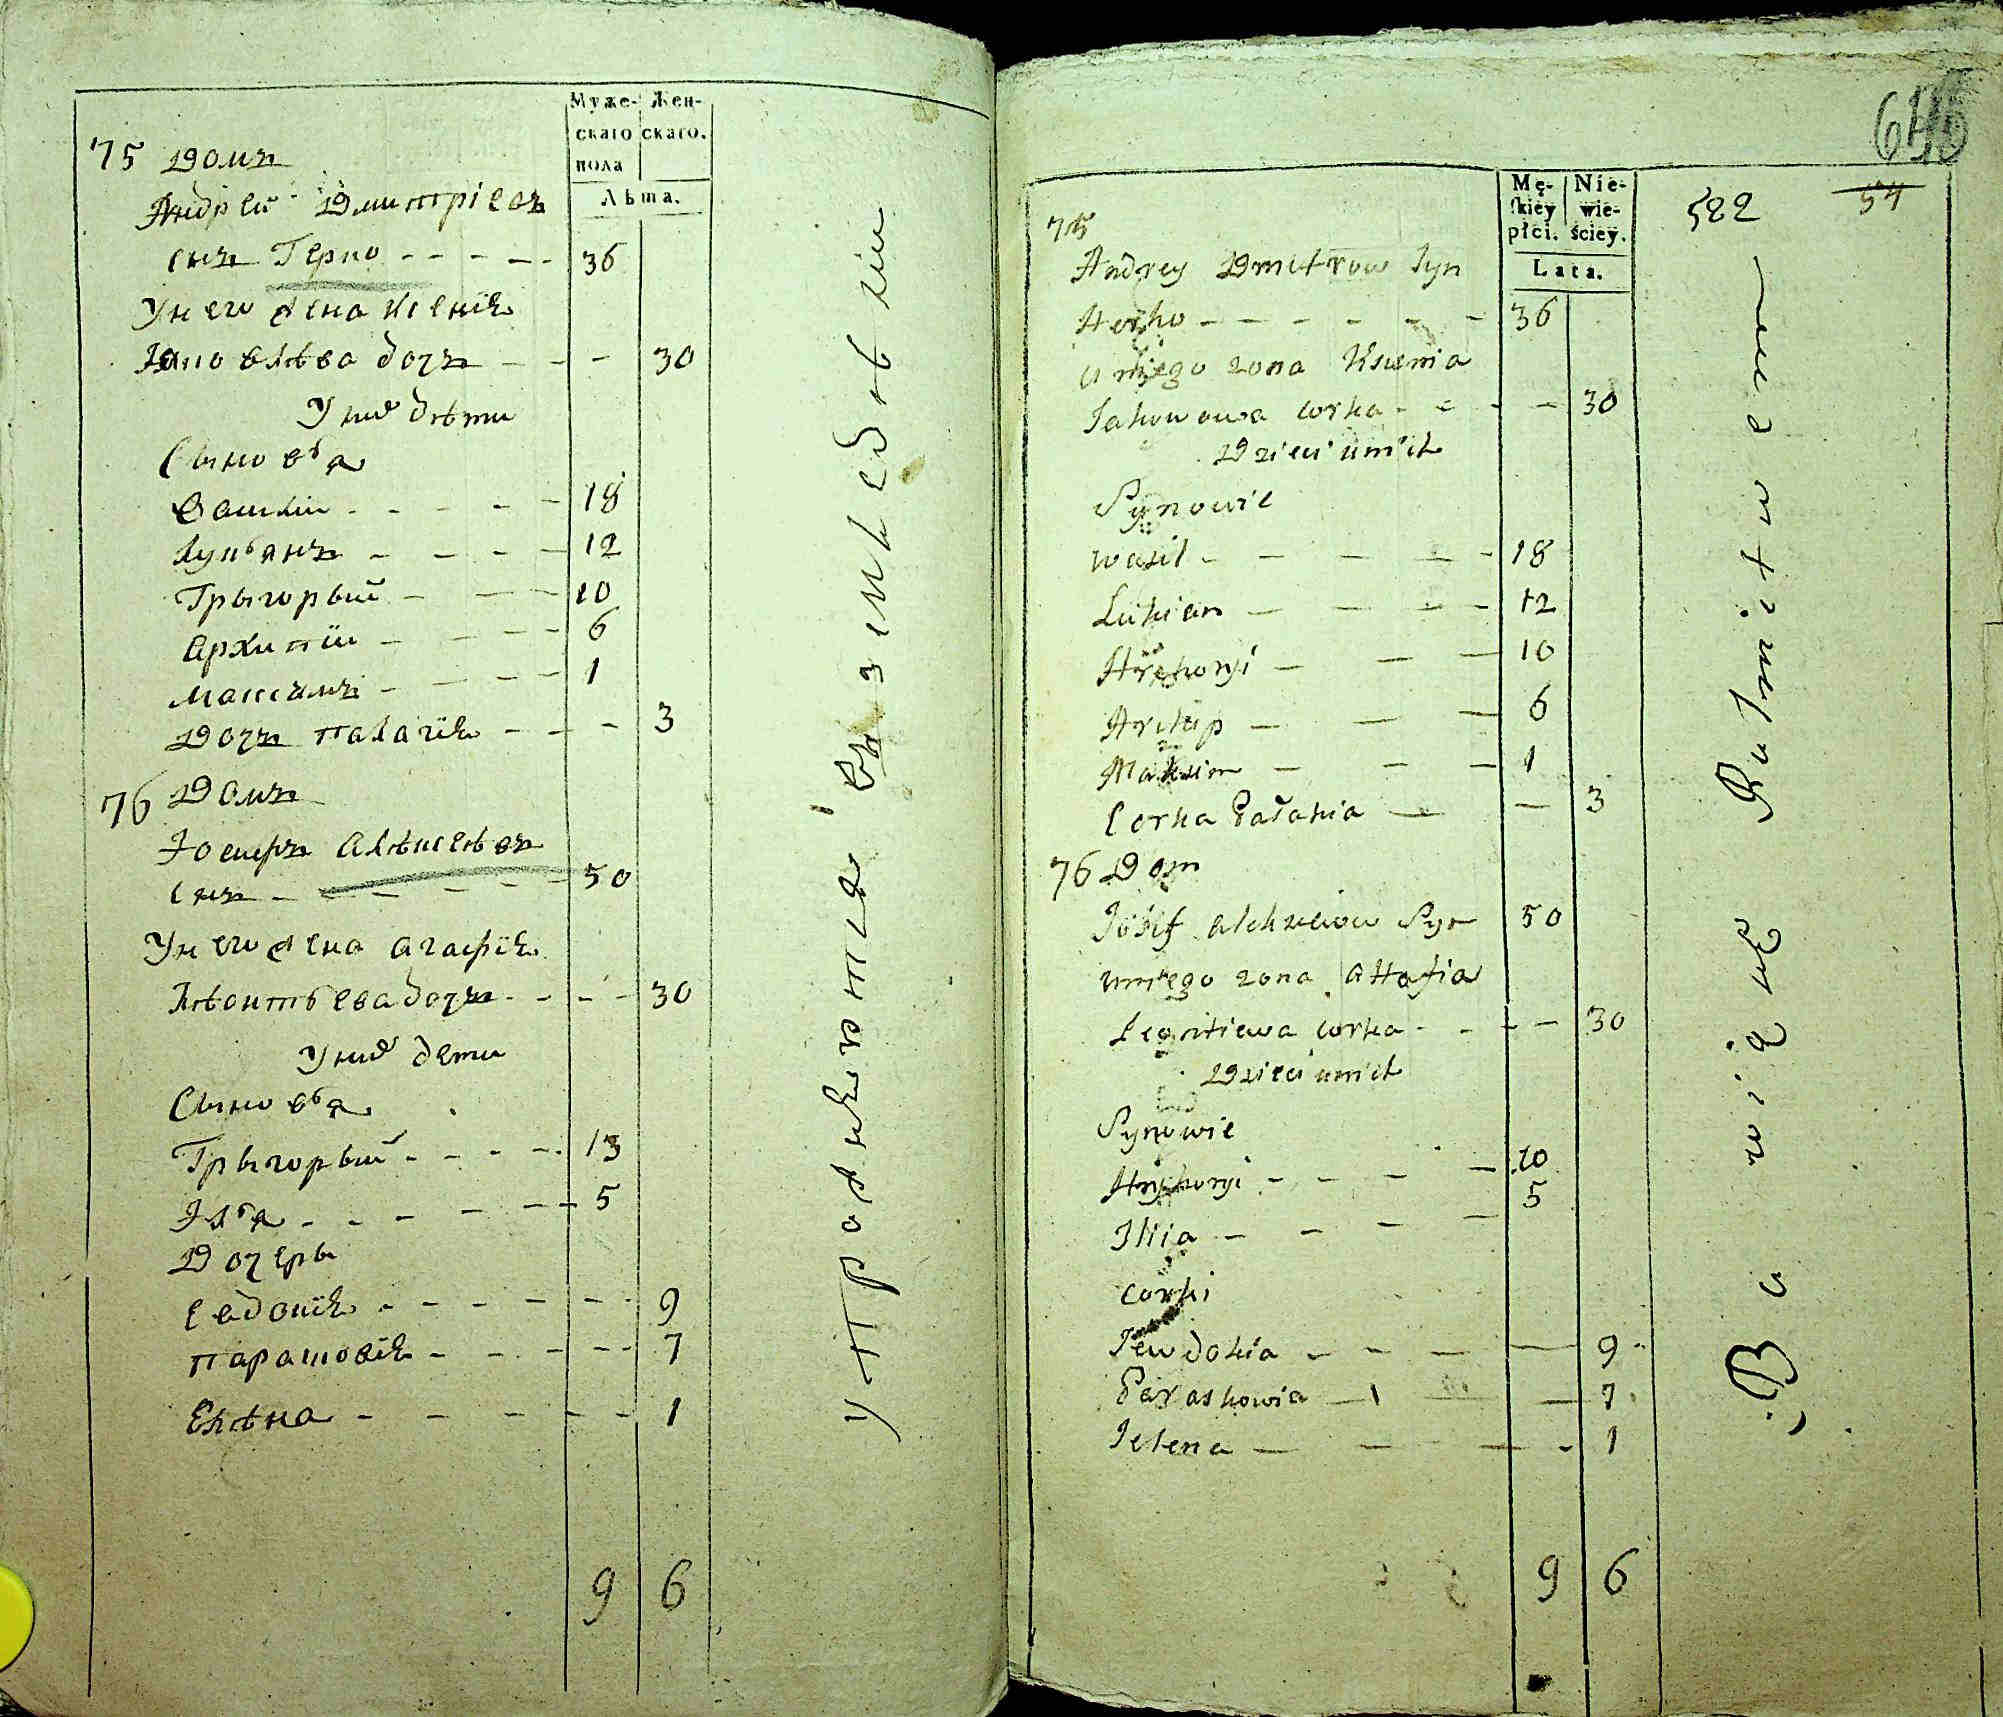 Муже- Жен-
скаго скаго.
пола
Лѣта.
75 Домъ
Андрей Дмитріевъ
снъ Герко - - - - - 36
У него жена Ксенія
Яковлѣва дочъ - - - 30
У них дѣти
Сыновья
Василій - - - - - 18
Лукьянъ - - - - 12
Грыгорый - - - 10
Архипій - - - - 6
Максимъ - - - - 1
Дочъ палагія - - - 3
76 Домъ
Іосифъ Алѣксѣевъ
снъ - - - - - - 50
У него жена агафія
Лѣонтьева дочъ - - - - 30
У них дети
Сыновья
Грыгорый - - - - 13
Илья - - - - - - 5
Дочеры
Евдокія - - - - - - - 9
парасковія - - - - - - 7
Елѣна - - - - - - 1
9 6
646
Mę- Nie-
skiey wie-
płci. ściey.
Lata.
582 54
75
Andrey Dmitrow Syn
Herko - - - - - - 36
u niego zona Ksienia
Jakowowa corka - - - - 30
Dzieci u nich
Synowie
Wasil - - - - - 18
Lukian - - - - 12
Hrehoryi - - - 10
Archip - - - 6
Maksim - - - 1
Corka Pałahia - - 3
76 Dom
Józif alekzeiow Syn 50
u niego zona aHafia
Leontiewa corka - - - - 30
Dzieci u nich
Synowie
Hryhoryi - - - - 10
Jliia - - - - 5
corki
Jewdokia - - - - 9
Paraskowia - - - 7
Jelena - - - - 1
9 6